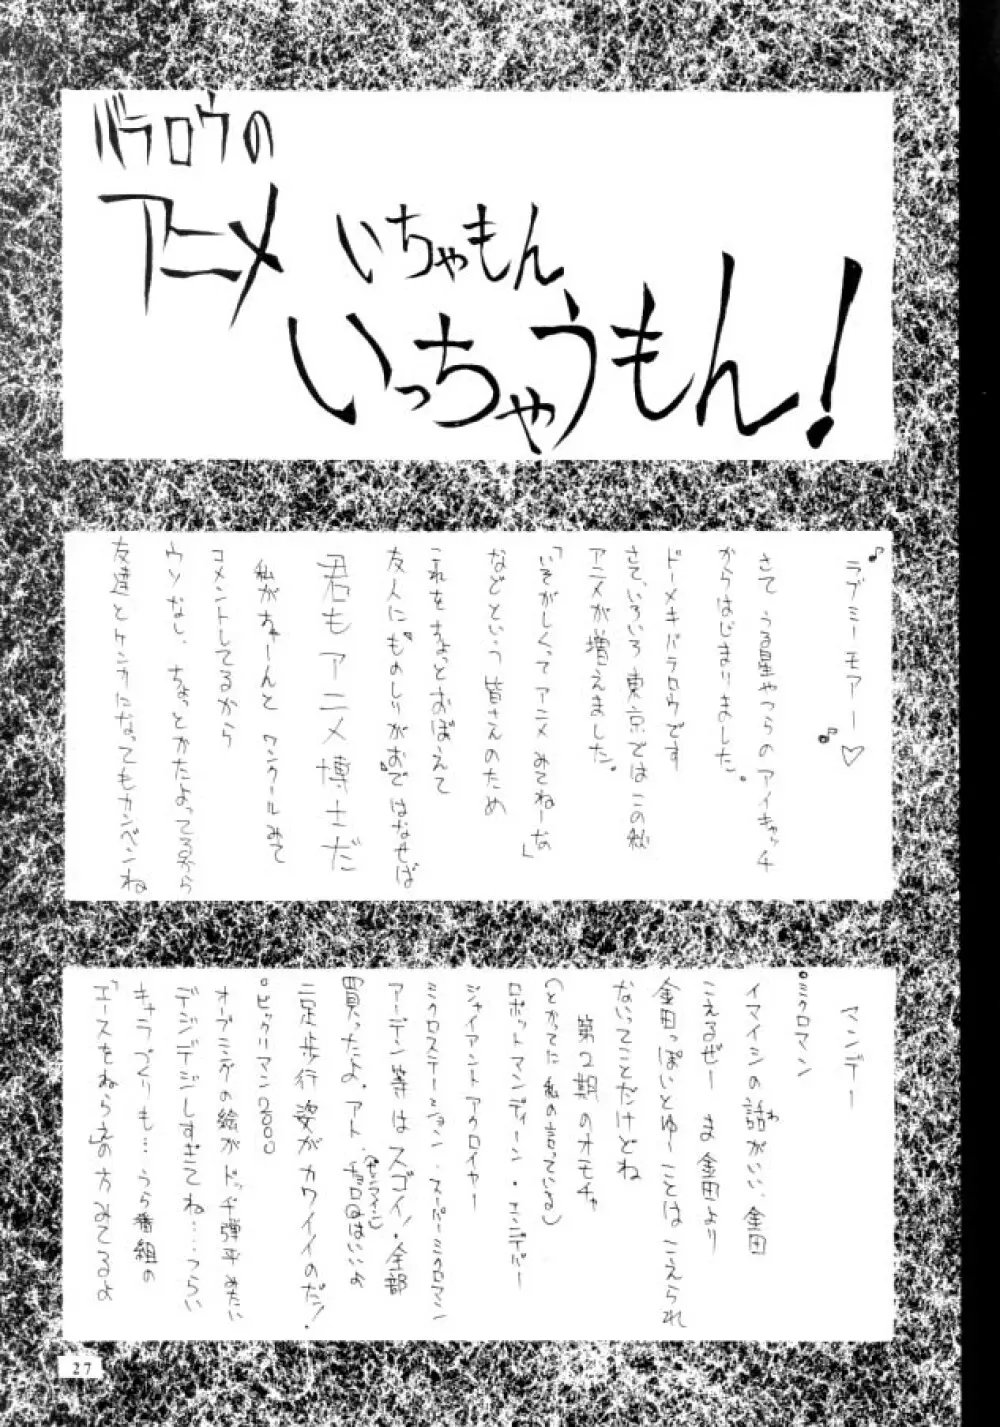 バラロウの
アニメ
いちゃもん
いっちゃうもん!
♪ラブミーモアー♪♡
さて うる星やつらのアイキャッチ
からはじまりました。
ドーメキバラロウです
さて、いろいろ東京ではこの秋
アニメが増えました。
「いそがしくってアニメみてねーな」
などという皆さんのため
これをちょっとおぼえて
友人に"ものしりがお"ではなせば
君もアニメ博士だ
私がちゃーんと ワンクールみて
コメントしてるから
ウソなし、ちょっとかたよってるから
友達とケンカになってもカンベンね
マンデー
°ミクロマン
イマイシの話がいい、金田
こえるぜー ま 金田より
金田っぽいとゆーことはこえられ
ないってことだけどね
第2期のオモチャ
(とかってに私の言っている)
ロボットマンディーン・エンデバー
ジャイアントアクロイヤー
ミクロステーション・スーパーミクロマン
アーデン等はスゴイ!全部
買ったよ。アト、チョロQはいいよ
二足歩行姿がカワイイのだ!
°ビックリマン2000
オープニングの絵がドッヂ弾平みたい
デジデジしすぎてね…つらい
キャラづくりも…うら番組の
「エースをねらえ」の方みてるよ
27